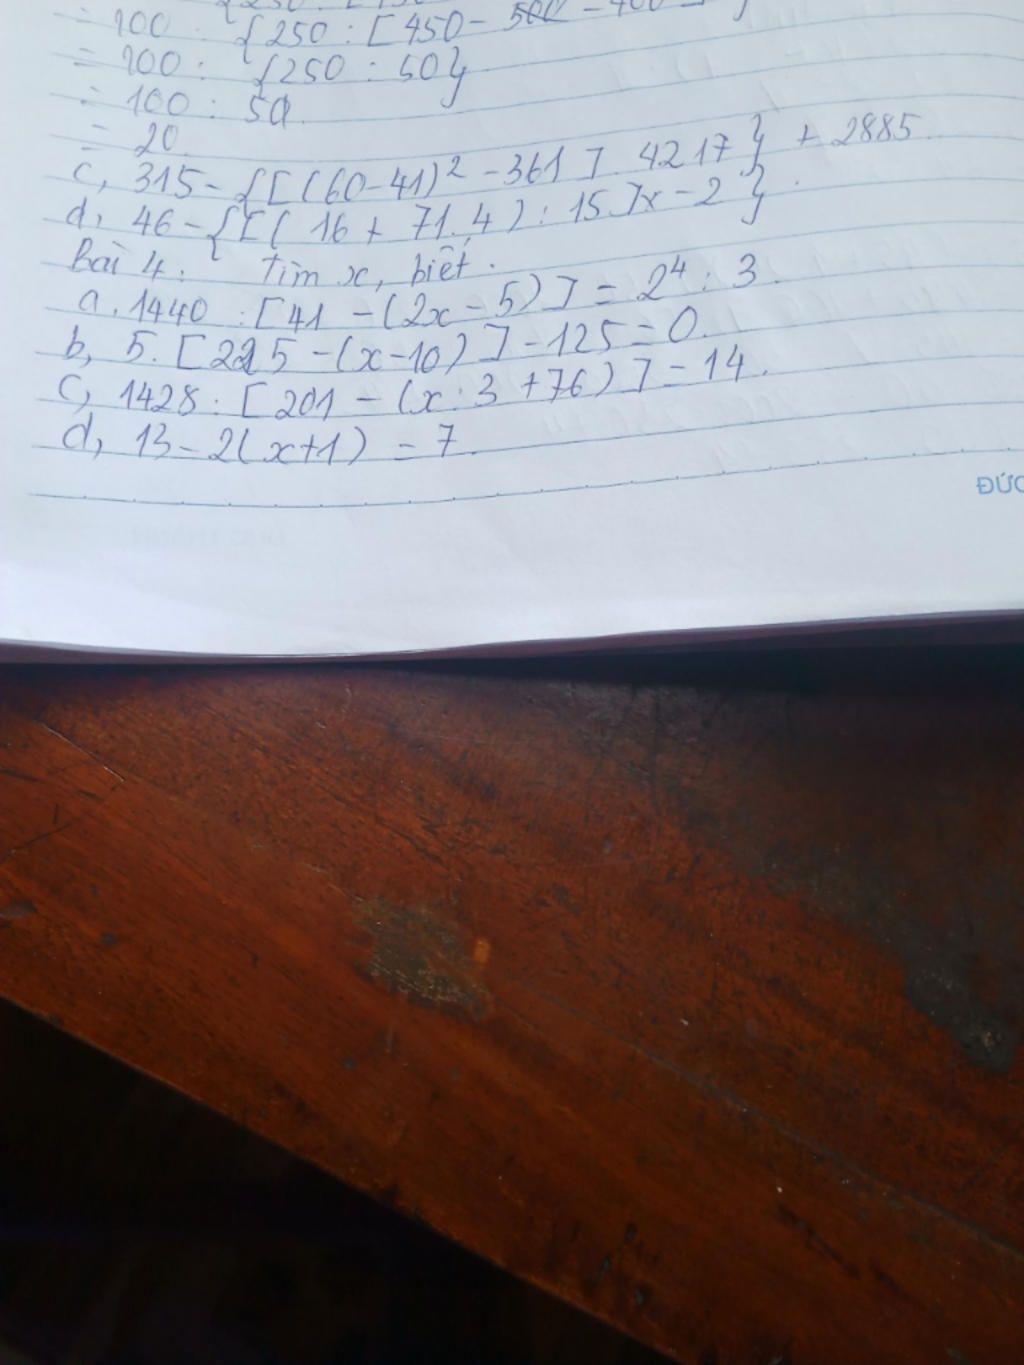 = 100 : {250 : [450 - 500 - 400
= 100 : {250 : 50}
= 100 : 50
= 20
c, 315 - {[(60 - 41)² - 361]. 4217} + 2885
d, 46 - {[(16 + 71.4) : 15]x - 2}
Bài 4. Tìm x, biết.
a. 1440 : [41 - (2x - 5)] = 2⁴ : 3.
b, 5. [225 - (x - 10)] - 125 = 0.
c, 1428 : [201 - (x : 3 + 76)] = 14.
d, 13 - 2(x + 1) = 7.
ĐỨC